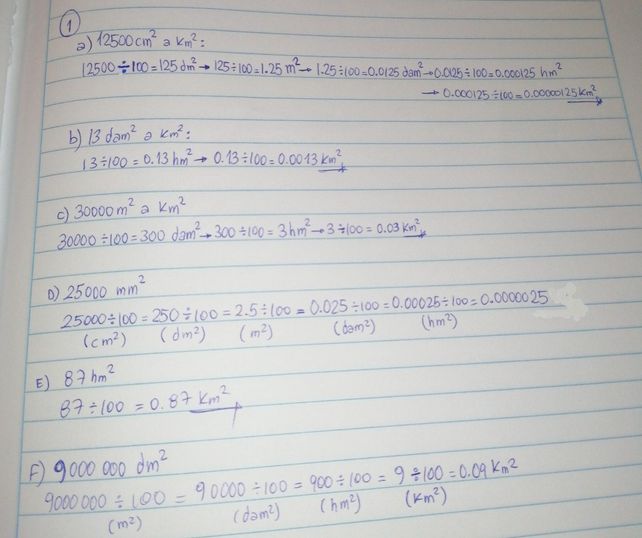 1
a) 12500 cm² a Km²:
12500 ÷ 100 = 125 dm² → 125 ÷ 100 = 1.25 m² → 1.25 ÷ 100 = 0.0125 dam² → 0.0125 ÷ 100 = 0.000125 hm²
→ 0.000125 ÷ 100 = 0.00000125 Km²
b) 13 dam² a Km²:
13 ÷ 100 = 0.13 hm² → 0.13 ÷ 100 = 0.0013 Km²
c) 30000 m² a Km²
30000 ÷ 100 = 300 dam² → 300 ÷ 100 = 3 hm² → 3 ÷ 100 = 0.03 Km²
D) 25000 mm²
25000 ÷ 100 = 250 ÷ 100 = 2.5 ÷ 100 = 0.025 ÷ 100 = 0.00025 ÷ 100 = 0.0000025
(cm²) (dm²) (m²) (dam²) (hm²)
E) 87 hm²
87 ÷ 100 = 0.87 Km²
F) 9000 000 dm²
9000000 ÷ 100 = 90000 ÷ 100 = 900 ÷ 100 = 9 ÷ 100 = 0.09 Km²
(m²) (dam²) (hm²) (Km²)